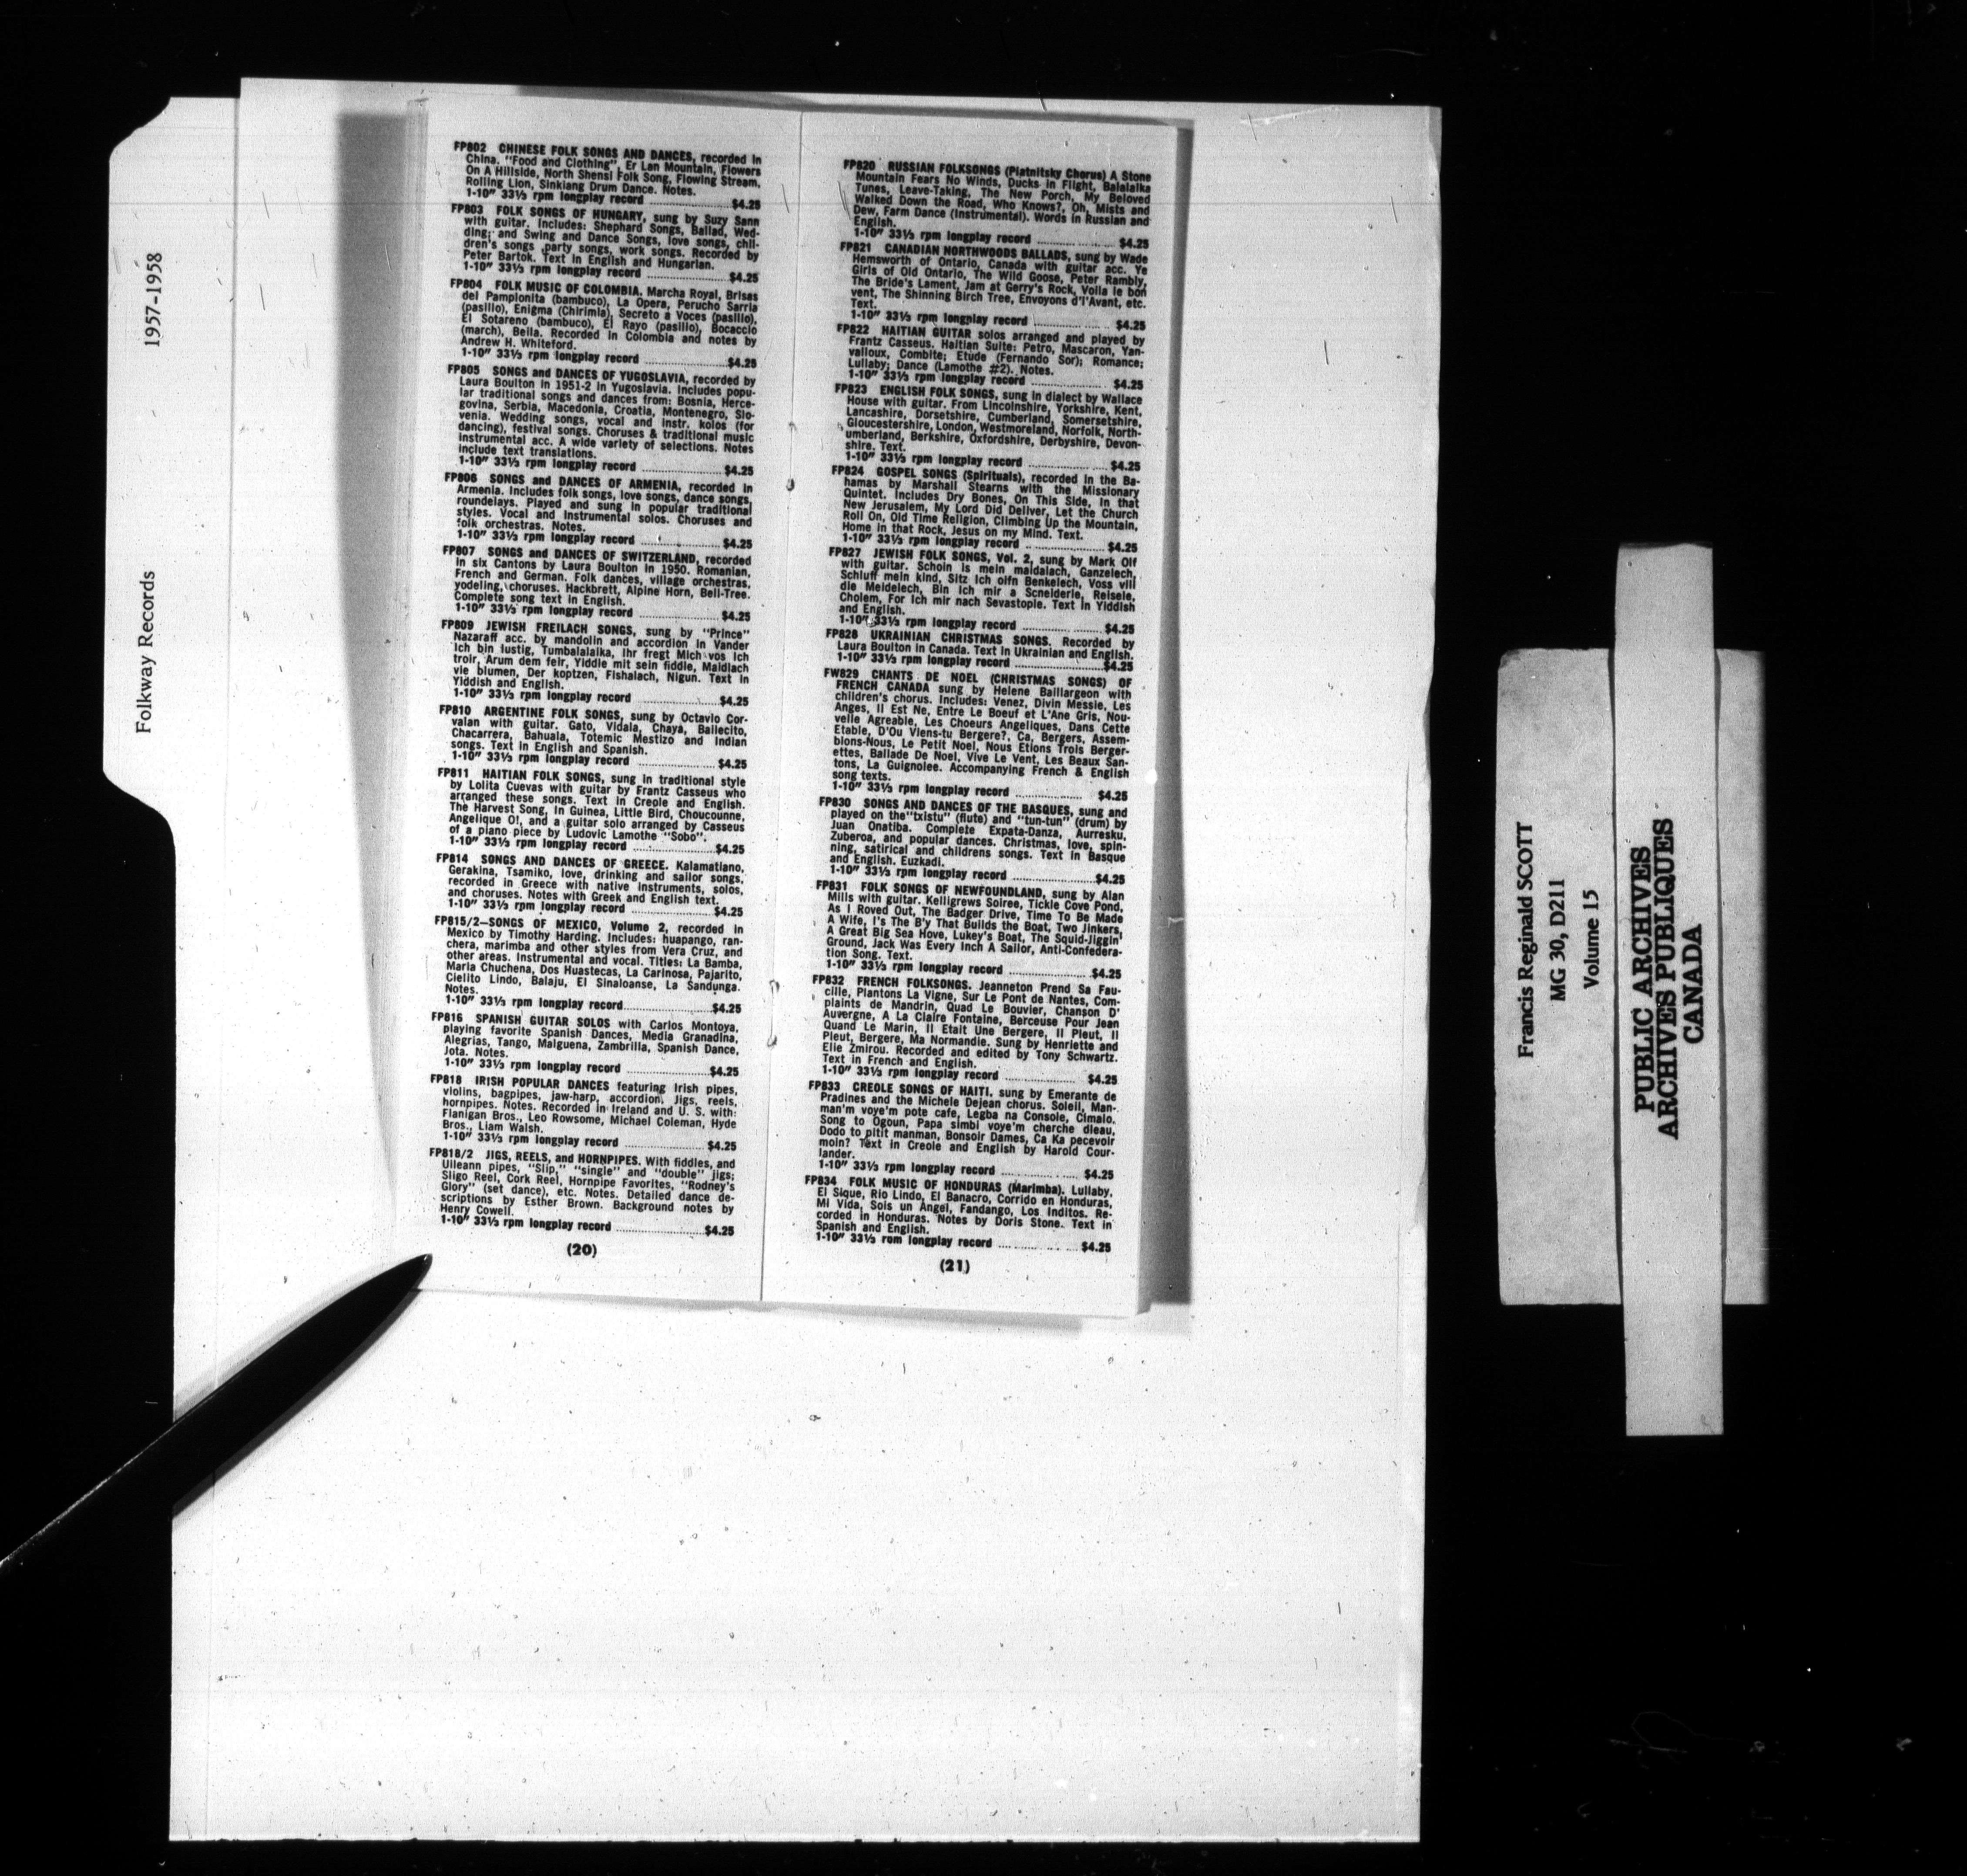 Folkway Records
1957-1958
FP802 CHINESE FOLK SONGS AND DANCES, recorded in
China. "Food and Clothing", Er Lan Mountain, Flowers
On A Hillside, North Shensi Folk Song, Flowing Stream,
Rolling Lion, Sinkiang Drum Dance. Notes.
1-10" 33⅓ rpm longplay record ........................ $4.25
FP803 FOLK SONGS OF HUNGARY, sung by Suzy Sann
with guitar. Includes: Shephard Songs, Ballad, Wed-
ding; and Swing and Dance Songs, love songs, chil-
dren's songs party songs, work songs. Recorded by
Peter Bartok. Text in English and Hungarian.
1-10" 33⅓ rpm longplay record ........................ $4.25
FP804 FOLK MUSIC OF COLOMBIA. Marcha Royal, Brisas
del Pamplonita (bambuco), La Opera, Perucho Sarria
(pasillo), Enigma (Chirimia), Secreto a Voces (pasillo),
El Sotareno (bambuco), El Rayo (pasillo), Bocaccio
(march), Bella. Recorded in Colombia and notes by
Andrew H. Whiteford.
1-10" 33⅓ rpm longplay record ........................ $4.25
FP805 SONGS and DANCES OF YUGOSLAVIA, recorded by
Laura Boulton in 1951-2 in Yugoslavia. Includes popu-
lar traditional songs and dances from: Bosnia, Herce-
govina, Serbia, Macedonia, Croatia, Montenegro, Slo-
venia. Wedding songs, vocal and instr. kolos (for
dancing), festival songs. Choruses & traditional music
instrumental acc. A wide variety of selections. Notes
include text translations.
1-10" 33⅓ rpm longplay record ........................ $4.25
FP806 SONGS and DANCES OF ARMENIA, recorded in
Armenia. Includes folk songs, love songs, dance songs,
roundelays. Played and sung in popular traditional
styles. Vocal and Instrumental solos. Choruses and
folk orchestras. Notes.
1-10" 33⅓ rpm longplay record ........................ $4.25
FP807 SONGS and DANCES OF SWITZERLAND, recorded
in six Cantons by Laura Boulton in 1950. Romanian,
French and German. Folk dances, village orchestras,
yodeling, choruses. Hackbrett, Alpine Horn, Bell-Tree.
Complete song text in English.
1-10" 33⅓ rpm longplay record ........................ $4.25
FP809 JEWISH FREILACH SONGS, sung by "Prince"
Nazaraff acc. by mandolin and accordion in Vander
Ich bin lustig, Tumbalalaika, Ihr fregt Mich vos Ich
troir, Arum dem feir, Yiddle mit sein fiddle, Maidlach
vie blumen, Der koptzen, Fishalach, Nigun. Text in
Yiddish and English.
1-10" 33⅓ rpm longplay record ........................ $4.25
FP810 ARGENTINE FOLK SONGS, sung by Octavio Cor-
valan with guitar. Gato, Vidala, Chaya, Bailecito,
Chacarrera, Bahuala, Totemic Mestizo and Indian
songs. Text in English and Spanish.
1-10" 33⅓ rpm longplay record ........................ $4.25
FP811 HAITIAN FOLK SONGS, sung in traditional style
by Lolita Cuevas with guitar by Frantz Casseus who
arranged these songs. Text in Creole and English.
The Harvest Song, In Guinea, Little Bird, Choucounne,
Angelique O!, and a guitar solo arranged by Casseus
of a piano piece by Ludovic Lamothe "Sobo".
1-10" 33⅓ rpm longplay record ........................ $4.25
FP814 SONGS AND DANCES OF GREECE. Kalamatiano,
Gerakina, Tsamiko, love, drinking and sailor songs,
recorded in Greece with native instruments, solos,
and choruses. Notes with Greek and English text.
1-10" 33⅓ rpm longplay record ........................ $4.25
FP815/2—SONGS OF MEXICO, Volume 2, recorded in
Mexico by Timothy Harding. Includes: huapango, ran-
chera, marimba and other styles from Vera Cruz, and
other areas. Instrumental and vocal. Titles: La Bamba,
Maria Chuchena, Dos Huastecas, La Carinosa, Pajarito,
Cielito Lindo, Balaju, El Sinaloanse, La Sandunga.
Notes.
1-10" 33⅓ rpm longplay record........................ $4.25
FP816 SPANISH GUITAR SOLOS with Carlos Montoya,
playing favorite Spanish Dances, Media Granadina,
Alegrias, Tango, Malguena, Zambrilla, Spanish Dance,
Jota. Notes.
1-10" 33⅓ rpm longplay record ........................ $4.25
FP818 IRISH POPULAR DANCES featuring Irish pipes,
violins, bagpipes, jaw-harp, accordion. Jigs, reels,
hornpipes. Notes. Recorded in Ireland and U. S. with:
Flanigan Bros., Leo Rowsome, Michael Coleman, Hyde
Bros., Liam Walsh.
1-10" 33⅓ rpm longplay record ........................ $4.25
FP818/2 JIGS, REELS, and HORNPIPES. With fiddles, and
Uileann pipes, "Slip," "single" and "double" jigs;
Sligo Reel, Cork Reel, Hornpipe Favorites, "Rodney's
Glory" (set dance), etc. Notes. Detailed dance de-
scriptions by Esther Brown. Background notes by
Henry Cowell.
1-10" 33⅓ rpm longplay record ........................ $4.25
(20)
FP820 RUSSIAN FOLKSONGS (Piatnitsky Chorus) A Stone
Mountain Fears No Winds, Ducks in Flight, Balalaika
Tunes, Leave-Taking, The New Porch, My Beloved
Walked Down the Road, Who Knows?, Oh, Mists and
Dew, Farm Dance (Instrumental). Words in Russian and
English.
1-10" 33⅓ rpm longplay record ........................ $4.25
FP821 CANADIAN NORTHWOODS BALLADS, sung by Wade
Hemsworth of Ontario, Canada with guitar acc. Ye
Girls of Old Ontario, The Wild Goose, Peter Rambly,
The Bride's Lament, Jam at Gerry's Rock, Voila le bon
vent, The Shinning Birch Tree, Envoyons d'l'Avant, etc.
Text.
1-10" 33⅓ rpm longplay record ........................ $4.25
FP822 HAITIAN GUITAR solos arranged and played by
Frantz Casseus. Haitian Suite: Petro, Mascaron, Yan-
valloux, Combite; Etude (Fernando Sor); Romance;
Lullaby; Dance (Lamothe #2). Notes.
1-10" 33⅓ rpm longplay record ........................ $4.25
FP823 ENGLISH FOLK SONGS, sung in dialect by Wallace
House with guitar. From Lincolnshire, Yorkshire, Kent,
Lancashire, Dorsetshire, Cumberland, Somersetshire,
Gloucestershire, London, Westmoreland, Norfolk, North-
umberland, Berkshire, Oxfordshire, Derbyshire, Devon-
shire. Text.
1-10" 33⅓ rpm longplay record ........................ $4.25
FP824 GOSPEL SONGS (Spirituals), recorded in the Ba-
hamas by Marshall Stearns with the Missionary
Quintet. Includes Dry Bones, On This Side, In that
New Jerusalem, My Lord Did Deliver, Let the Church
Roll On, Old Time Religion, Climbing Up the Mountain,
Home in that Rock, Jesus on my Mind. Text.
1-10" 33⅓ rpm longplay record ........................ $4.25
FP827 JEWISH FOLK SONGS, Vol. 2, sung by Mark Olf
with guitar. Schoin is mein maidalach, Ganzelech,
Schluff mein kind, Sitz Ich oifn Benkelech, Voss vill
die Meidelech, Bin Ich mir a Scneiderle, Reisele,
Cholem, For Ich mir nach Sevastople. Text in Yiddish
and English.
1-10" 33⅓ rpm longplay record ........................ $4.25
FP828 UKRAINIAN CHRISTMAS SONGS. Recorded by
Laura Boulton in Canada. Text in Ukrainian and English.
1-10" 33⅓ rpm longplay record ........................ $4.25
FW829 CHANTS DE NOEL (CHRISTMAS SONGS) OF
FRENCH CANADA sung by Helene Baillargeon with
children's chorus. Includes: Venez, Divin Messie, Les
Anges, Il Est Ne, Entre Le Boeuf et L'Ane Gris, Nou-
velle Agreable, Les Choeurs Angeliques, Dans Cette
Etable, D'Ou Viens-tu Bergere?, Ca, Bergers, Assem-
blons-Nous, Le Petit Noel, Nous Etions Trois Berger-
ettes, Ballade De Noel, Vive Le Vent, Les Beaux San-
tons, La Guignolee. Accompanying French & English
song texts.
1-10" 33⅓ rpm longplay record ........................ $4.25
FP830 SONGS AND DANCES OF THE BASQUES, sung and
played on the"txistu" (flute) and "tun-tun" (drum) by
Juan Onatiba. Complete Expata-Danza, Aurresku,
Zuberoa, and popular dances. Christmas, love, spin-
ning, satirical and childrens songs. Text in Basque
and English. Euzkadi.
1-10" 33⅓ rpm longplay record ........................ $4.25
FP831 FOLK SONGS OF NEWFOUNDLAND, sung by Alan
Mills with guitar. Kelligrews Soiree, Tickle Cove Pond,
As I Roved Out, The Badger Drive, Time To Be Made
A Wife, I's The B'y That Builds the Boat, Two Jinkers,
A Great Big Sea Hove, Lukey's Boat, The Squid-Jiggin'
Ground, Jack Was Every Inch A Sailor, Anti-Confedera-
tion Song. Text.
1-10" 33⅓ rpm longplay record ........................ $4.25
FP832 FRENCH FOLKSONGS. Jeanneton Prend Sa Fau-
cille, Plantons La Vigne, Sur Le Pont de Nantes, Com-
plaints de Mandrin, Quad Le Bouvier, Chanson D'
Auvergne, A La Claire Fontaine, Berceuse Pour Jean
Quand Le Marin, Il Etait Une Bergere, Il Pleut, Il
Pleut, Bergere, Ma Normandie. Sung by Henriette and
Elie Zmirou. Recorded and edited by Tony Schwartz.
Text in French and English.
1-10" 33⅓ rpm longplay record ........................ $4.25
FP833 CREOLE SONGS OF HAITI, sung by Emerante de
Pradines and the Michele Dejean chorus. Soleil, Man-
man'm voye'm pote cafe, Legba na Console, Cimalo.
Song to Ogoun, Papa simbi voye'm cherche dleau,
Dodo to pitit manman, Bonsoir Dames, Ca Ka pecevoir
moin? Text in Creole and English by Harold Cour-
lander.
1-10" 33⅓ rpm longplay record ........................ $4.25
FP834 FOLK MUSIC OF HONDURAS (Marimba). Lullaby,
El Sique, Rio Lindo, El Banacro, Corrido en Honduras,
Mi Vida, Sois un Angel, Fandango, Los Inditos. Re-
corded in Honduras. Notes by Doris Stone. Text in
Spanish and English.
1-10" 33⅓ rom longplay record ........................ $4.25
(21)
Francis Reginald SCOTT
MG 30, D211
Volume 15
PUBLIC ARCHIVES
ARCHIVES PUBLIQUES
CANADA